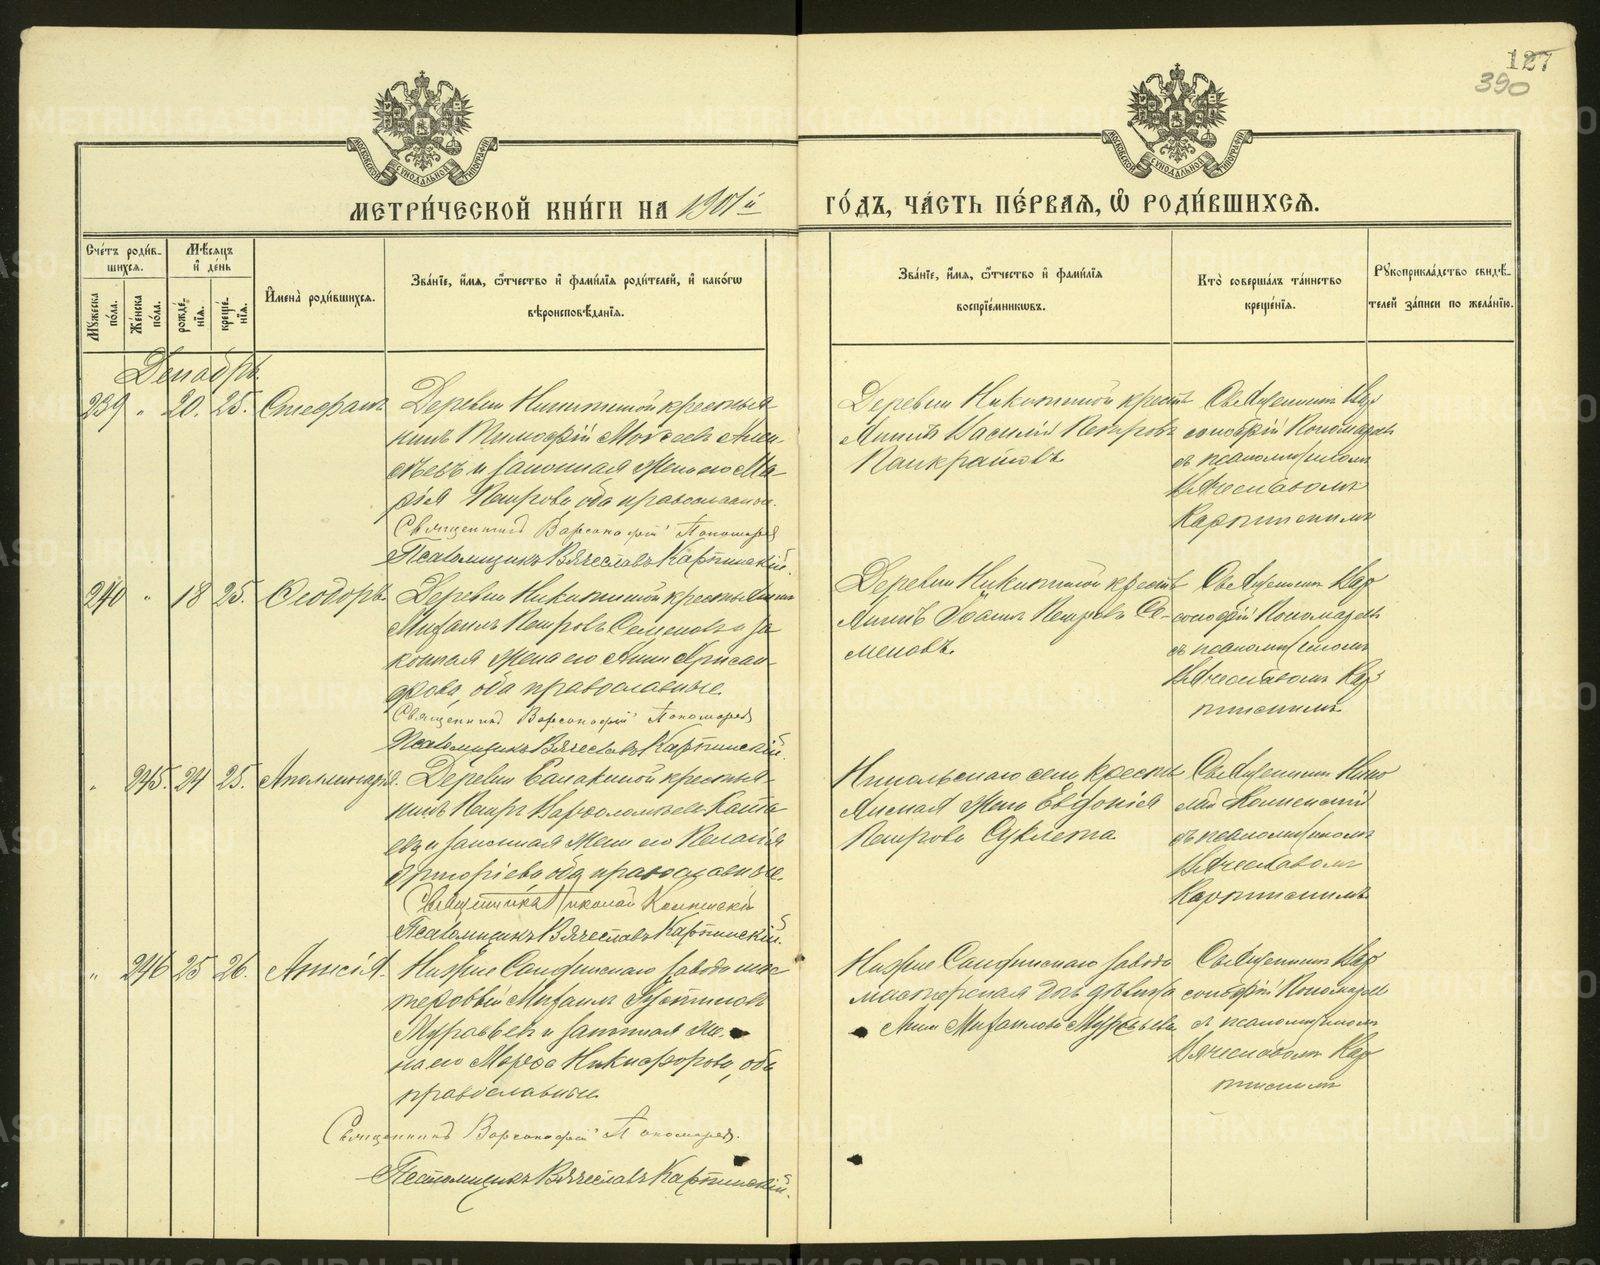 127
390
МЕТРИ́ЧЕСКОЙ КНИ́ГИ НА 1901й ГО́ДЪ, ЧА́СТЬ ПЕ́РВАЯ, Ѿ РОДИ́ВШИХСЯ.
Сче́тъ роди́в-
шихся.
Мꙋ́жеска
по́ла.
Же́нска
по́ла.
Мѣ́сяцъ
и҆ день
рожде́-
нїя.
креще́-
нїя.
И҆мена̀ роди́вшихся.
Зва́нїе, и҆́мя, ѻ҆́тчество и҆ фами́лїя роди́телей, и҆ како́гѡ
вѣроисповѣ́данїя.
Зва́нїе, и҆́мя, ѻ҆́тчество и҆ фами́лїя
воспрїе́мникѡвъ.
Кто̀ соверша́лъ та́инство
креще́нїя.
Рꙋкоприкла́дство свидѣ́-
телей за́писи по жела́нїю.
Декабрь.
239 " 20. 25. Стефанъ
Деревни Никитиной крестья-
нинъ Тимофей Моисеевъ Алек-
сѣевъ и законная жена его Ма-
рія Петрова, оба православные.
Священникъ Варсонофій Пономаревъ
Псаломщикъ Вячеславъ Карпинскій.
Деревни Никитиной крестья-
нинъ Василій Петровъ
Панкратовъ
Священникъ Вар-
сонофій Пономаревъ
съ псаломщикомъ
Вячеславомъ
Карпинскимъ
240 " 18 25. Ѳеодоръ
Деревни Никитиной крестьянинъ
Михаилъ Петровъ Семеновъ и за-
конная жена его Анна
оба православные.
Священникъ Варсонофій Пономаревъ
Псаломщикъ Вячеславъ Карпинскій.
Деревни Никитиной кресть-
янинъ Іоаннъ Петровъ Се-
меновъ.
Священникъ Вар-
сонофій Пономаревъ
съ псаломщикомъ
Вячеславомъ Кар-
пинскимъ.
" 245. 24 25. Аполлинарія.
Деревни крестья-
нинъ Петръ Варѳоломеевъ
и законная жена его Пелагія
Григоріева, оба православные.
Священникъ Николай
Псаломщикъ Вячеславъ Карпинскій.
Никольскаго села кресть-
янская жена Евдокія
Петрова
Священникъ Нико-
лай
съ псаломщикомъ
Вячеславомъ
Карпинскимъ.
" 246 25 26. Анисія.
Нижне Санфинскаго завода мас-
теровой Михаилъ Іустиновъ
Муравьевъ и законная же-
на его Марѳа Никифорова, оба
православные.
Священникъ Варсонофій Пономаревъ.
Псаломщикъ Вячеславъ Карпинскій.
Нижне Санфинскаго завода
мастерская дочь дѣвица
Анна Михаилова Муравьева
Священникъ Вар-
сонофій Пономаревъ
съ псаломщикомъ
Вячеславомъ Кар-
пинскимъ
METRIKI.GASO-URAL.RU